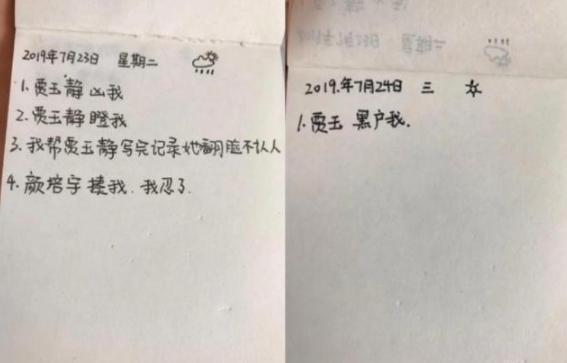 2019年7月23日 星期二
1. 贾玉静 凶我
2. 贾玉静 瞪我
3. 我帮贾玉静写完记录她翻脸不认人
4. 颜培宇 揍我. 我忍了.
2019.年7月24日 三
1. 贾玉 黑户我.